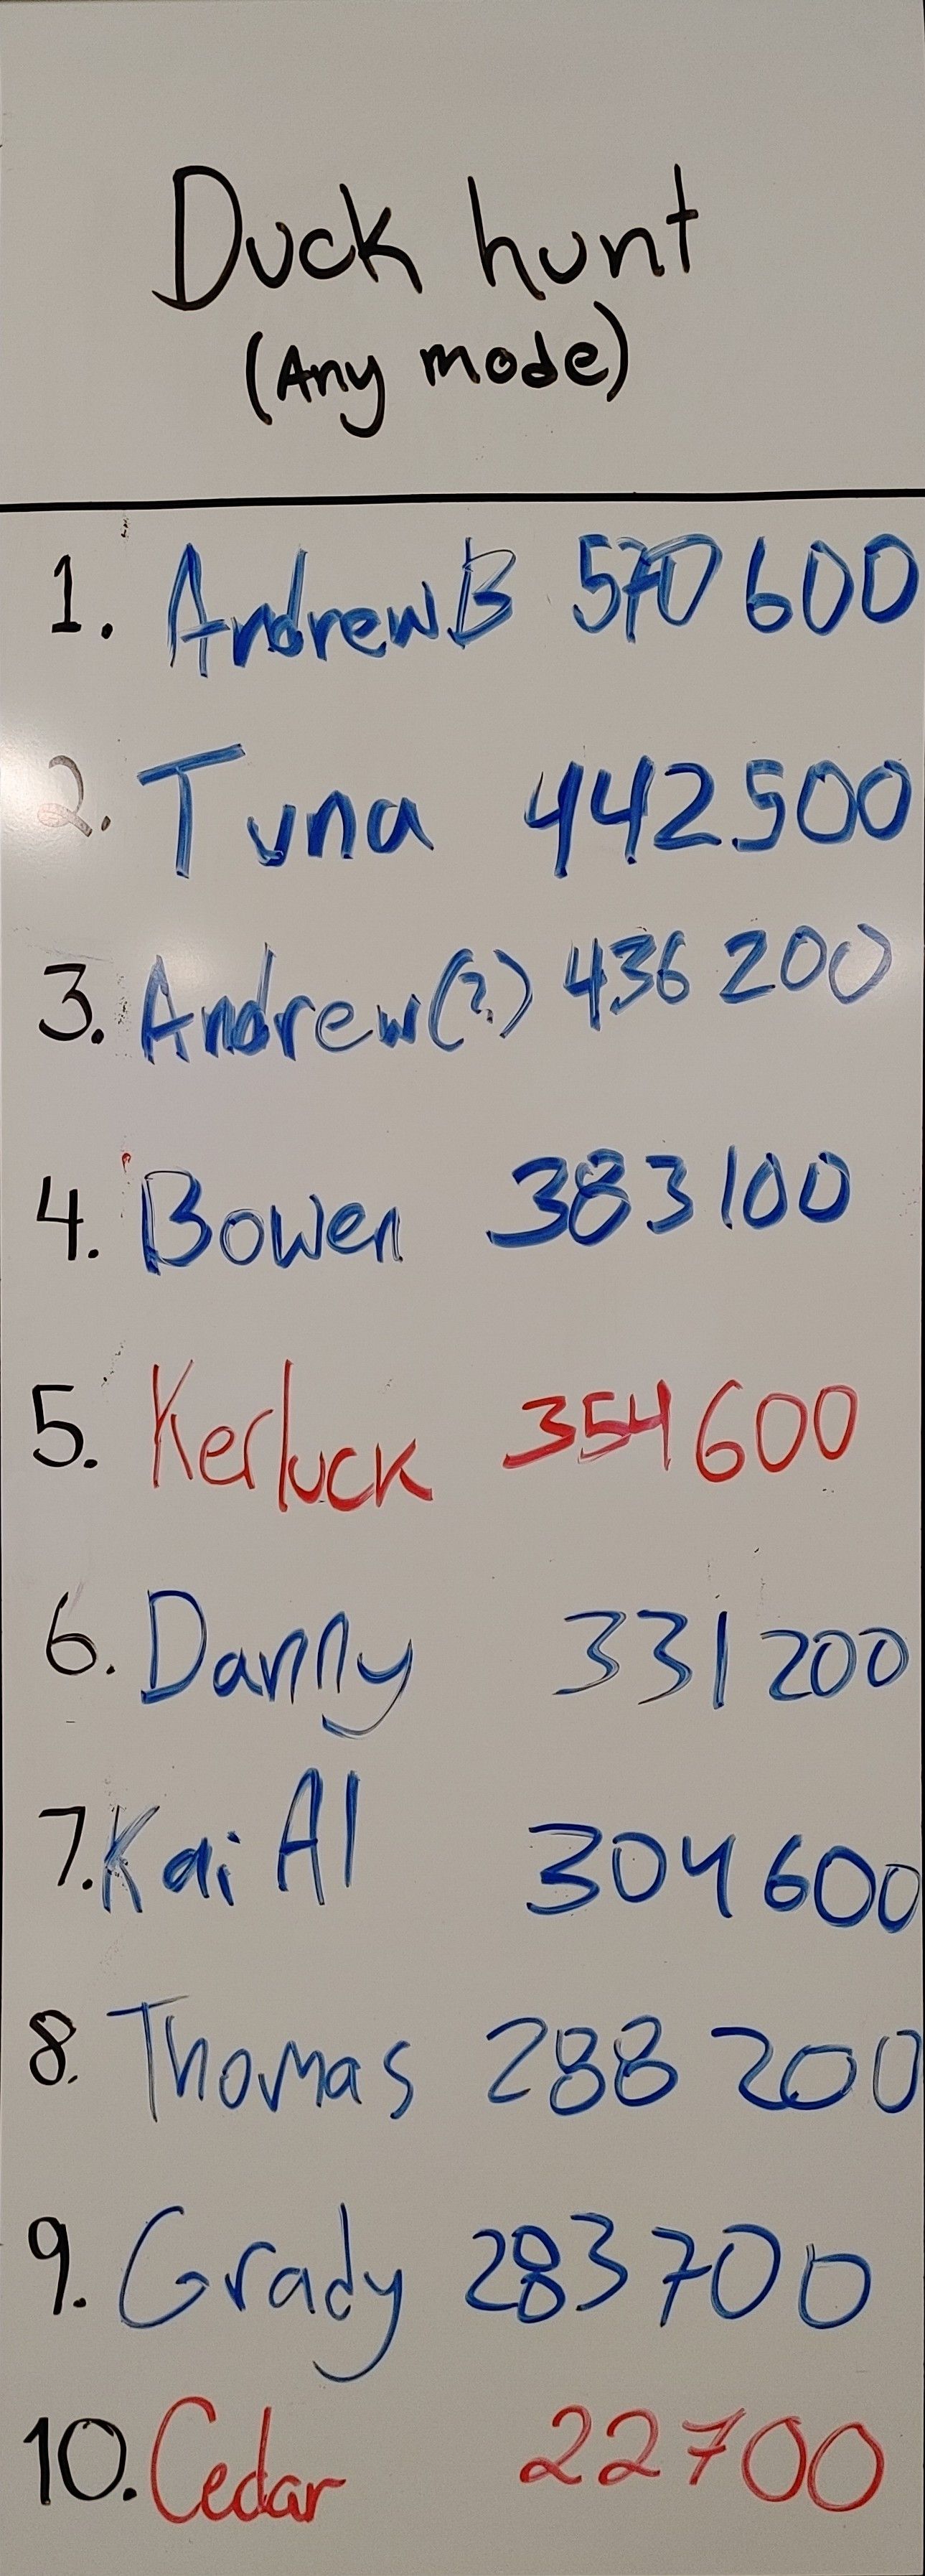 Duck hunt
(Any mode)
1. Andrew B 570 600
2. Tuna 442500
3. Andrew(?) 436 200
4. Bowen 383100
5. Kerluck 354600
6. Danny 331200
7. Kai Al 304600
8. Thomas 288 200
9. Grady 283700
10. Cedar 22700